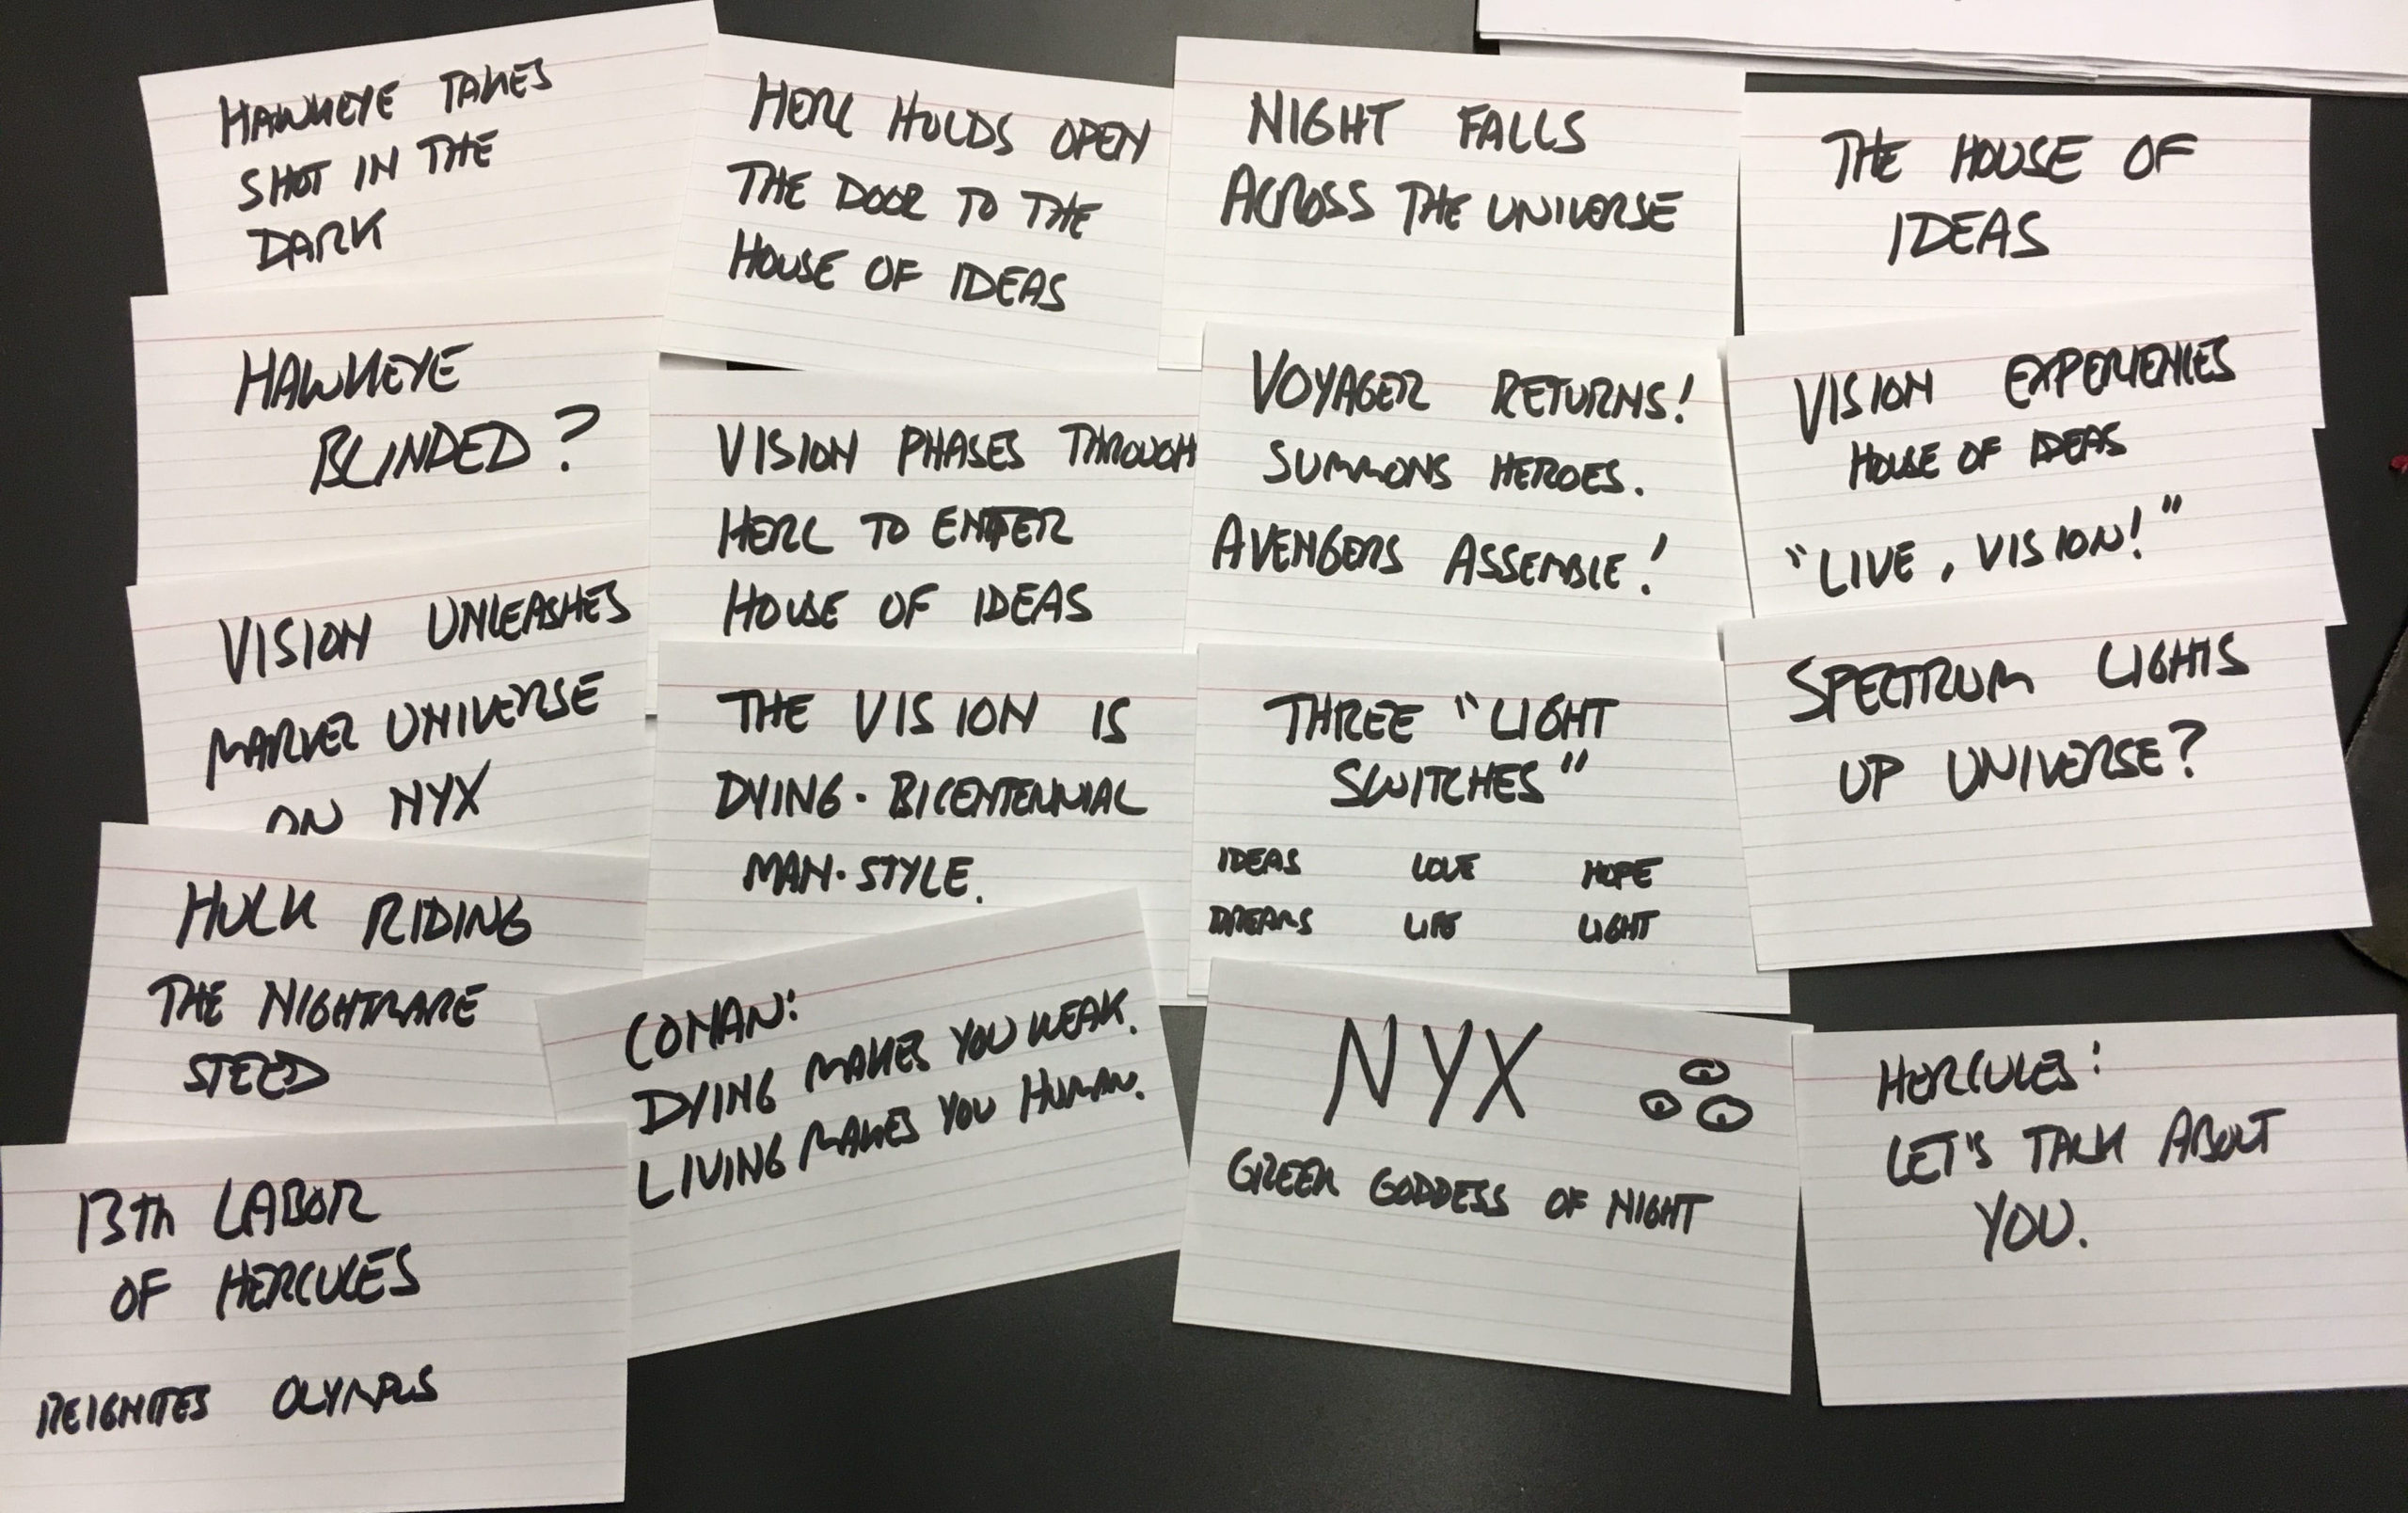 HAWKEYE TAKES
SHOT IN THE
DARK
HAWKEYE
BLINDED?
VISION UNLEASHES
MARVEL UNIVERSE
ON NYX
HULK RIDING
THE NIGHTMARE
STEED
13th LABOR
OF HERCULES
REIGNITES OLYMPUS
HERC HOLDS OPEN
THE DOOR TO THE
HOUSE OF IDEAS
VISION PHASES THROUGH
HERC TO ENTER
HOUSE OF IDEAS
THE VISION IS
DYING. BICENTENNIAL
MAN-STYLE.
CONAN:
DYING MAKES YOU WEAK.
LIVING MAKES YOU HUMAN.
NIGHT FALLS
ACROSS THE UNIVERSE
VOYAGER RETURNS!
SUMMONS HEROES.
AVENGERS ASSEMBLE!
THREE "LIGHT
SWITCHES"
IDEAS LOVE HOPE
DREAMS LIFE LIGHT
NYX
GREEK GODDESS OF NIGHT
THE HOUSE OF
IDEAS
VISION EXPERIENCES
HOUSE OF IDEAS
"LIVE, VISION!"
SPECTRUM LIGHTS
UP UNIVERSE?
HERCULES:
LET'S TALK ABOUT
YOU.